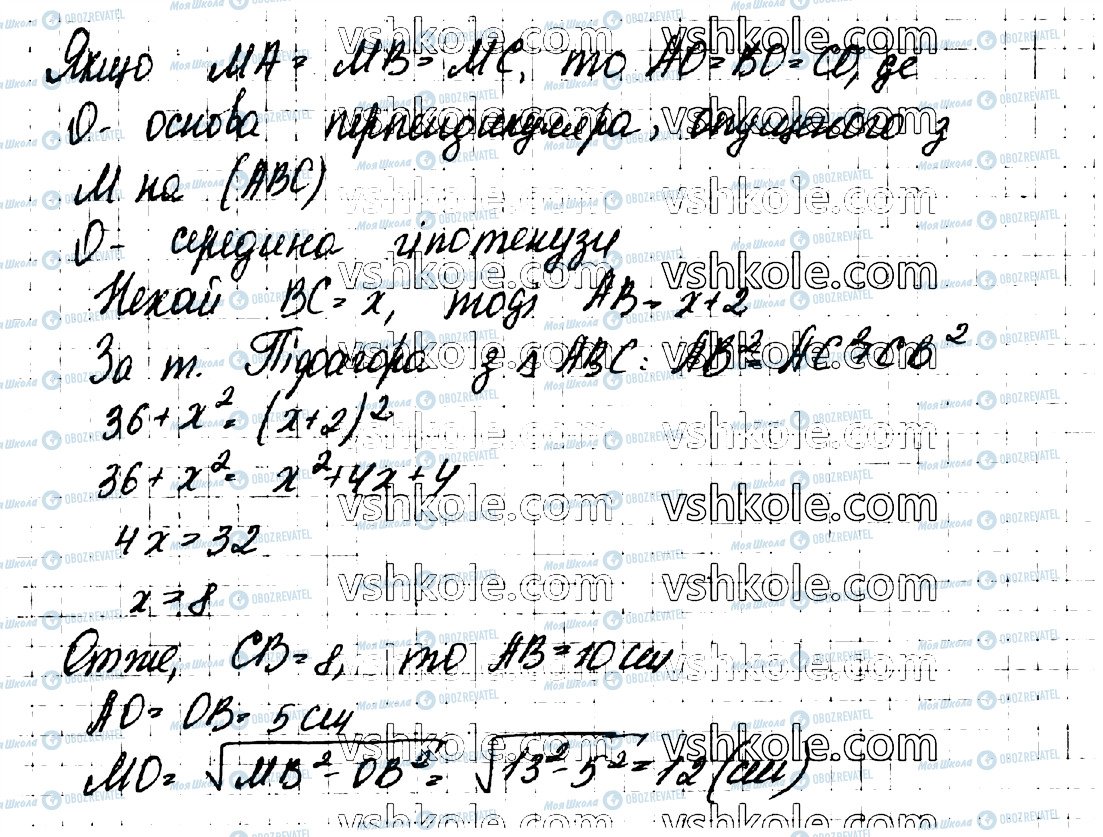 Якщо MA = MB = MC, то AO = BO = CO, де
O - основа перпендикуляра, опущеного з
M на (ABC)
O - середина гіпотенузи
Нехай BC = x, тоді AB = x+2
За т. Піфагора з Δ ABC: AB² = AC² + CB²
36 + x² = (x+2)²
36 + x² = x² + 4x + 4
4x = 32
x = 8
Отже, CB = 8, то AB = 10 см
AO = OB = 5 см
MO = √(MB² - OB²) = √(13² - 5²) = 12 (см)
vshkole.com
Моя Школа
OBOZREVATEL